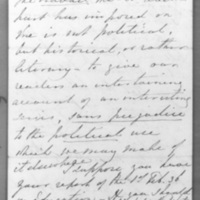 part has imposed on
me is not political,
but historical, or rather
literary – to give our
readers an entertaining
account of an interesting
series, sans prejudice
to the political use
which we may make of
it elsewhere. I suppose you have
your report of the 1st Feb. 36
on Education